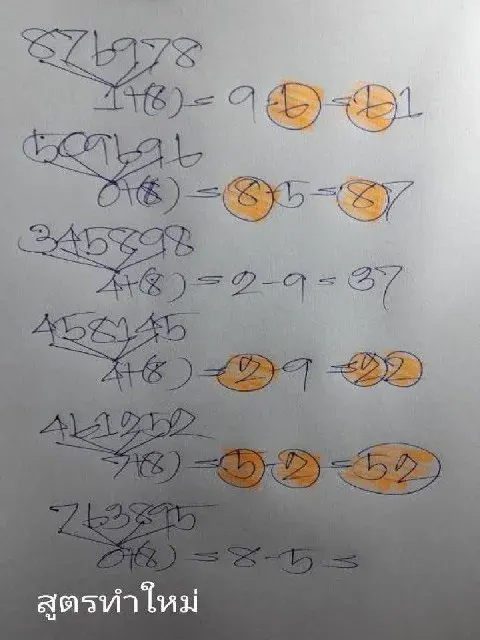 876978
1+(8) = 9-6 = 61
509696
0+(8) = 8-5 = 87
345898
4+(8) = 2-9 = 37
458145
4+(8) = 2-9 = 22
461252
7+(8) = 5-2 = 52
763895
0+(8) = 8-5 =
สูตรทำใหม่